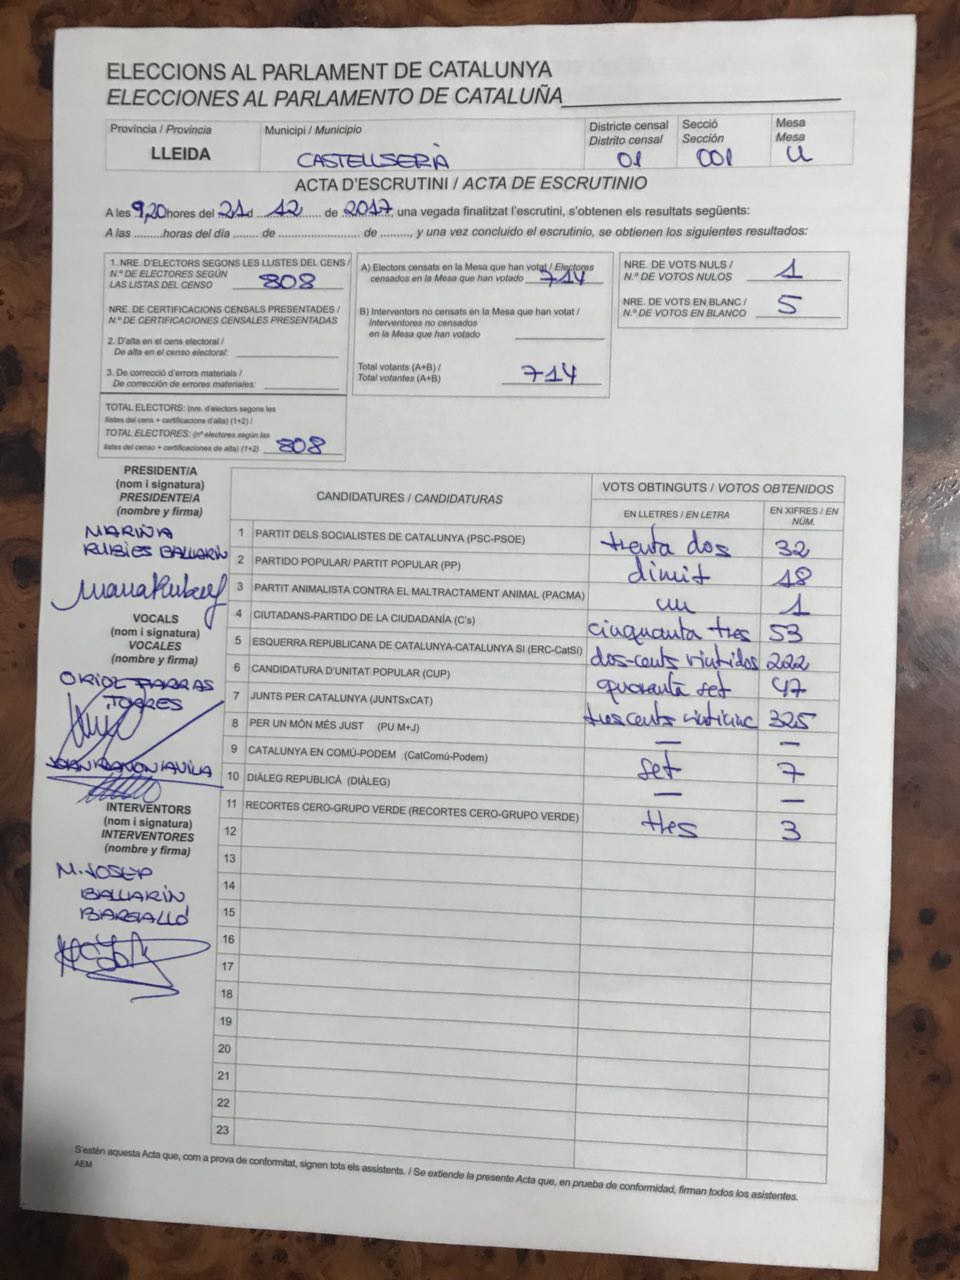 ELECCIONS AL PARLAMENT DE CATALUNYA
ELECCIONES AL PARLAMENTO DE CATALUÑA
Província / Provincia
LLEIDA
Municipi / Municipio
CASTELLSERÀ
Districte censal
Distrito censal
01
Secció
Sección
001
Mesa
Mesa
U
ACTA D'ESCRUTINI / ACTA DE ESCRUTINIO
A les 9,20 hores del 21 d ... 12 ... de 2017, una vegada finalitzat l'escrutini, s'obtenen els resultats següents:
A las .........horas del día ........ de ........................ de ........., y una vez concluido el escrutinio, se obtienen los siguientes resultados:
1. NRE. D'ELECTORS SEGONS LES LLISTES DEL CENS /
N.º DE ELECTORES SEGÚN
LAS LISTAS DEL CENSO 808
NRE. DE CERTIFICACIONS CENSALS PRESENTADES /
N.º DE CERTIFICACIONES CENSALES PRESENTADAS
2. D'alta en el cens electoral /
De alta en el censo electoral:
3. De correcció d'errors materials /
De corrección de errores materiales:
TOTAL ELECTORS: (nre. d'electors segons les
llistes del cens + certificacions d'alta) (1+2) /
TOTAL ELECTORES: (nº electores según las
listas del censo + certificaciones de alta) (1+2) 808
A) Electors censats en la Mesa que han votat / Electores
censados en la Mesa que han votado 714
B) Interventors no censats en la Mesa que han votat /
Interventores no censados
en la Mesa que han votado
Total votants (A+B) /
Total votantes (A+B) 714
NRE. DE VOTS NULS /
N.º DE VOTOS NULOS 1
NRE. DE VOTS EN BLANC /
N.º DE VOTOS EN BLANCO 5
PRESIDENT/A
(nom i signatura)
PRESIDENTE/A
(nombre y firma)
MARINA
RUBIES BALLARIN
VOCALS
(nom i signatura)
VOCALES
(nombre y firma)
ORIOL
TORRES
INTERVENTORS
(nom i signatura)
INTERVENTORES
(nombre y firma)
M. JOSEP
BALLARIN
BARGALLÓ
CANDIDATURES / CANDIDATURAS
VOTS OBTINGUTS / VOTOS OBTENIDOS
EN LLETRES / EN LETRA
EN XIFRES / EN NÚM.
1 PARTIT DELS SOCIALISTES DE CATALUNYA (PSC-PSOE) trenta dos 32
2 PARTIDO POPULAR/ PARTIT POPULAR (PP) divuit 18
3 PARTIT ANIMALISTA CONTRA EL MALTRACTAMENT ANIMAL (PACMA) un 1
4 CIUTADANS-PARTIDO DE LA CIUDADANÍA (C's) cinquanta tres 53
5 ESQUERRA REPUBLICANA DE CATALUNYA-CATALUNYA SI (ERC-CatSí) dos-cents vintidos 222
6 CANDIDATURA D'UNITAT POPULAR (CUP) quaranta set 47
7 JUNTS PER CATALUNYA (JUNTSxCAT) trescents vinticinc 325
8 PER UN MÓN MÉS JUST (PU M+J) — —
9 CATALUNYA EN COMÚ-PODEM (CatComú-Podem) set 7
10 DIÀLEG REPUBLICÀ (DIÀLEG) — —
11 RECORTES CERO-GRUPO VERDE (RECORTES CERO-GRUPO VERDE) tres 3
12
13
14
15
16
17
18
19
20
21
22
23
S'estén aquesta Acta que, com a prova de conformitat, signen tots els assistents. / Se extiende la presente Acta que, en prueba de conformidad, firman todos los asistentes.
AEM